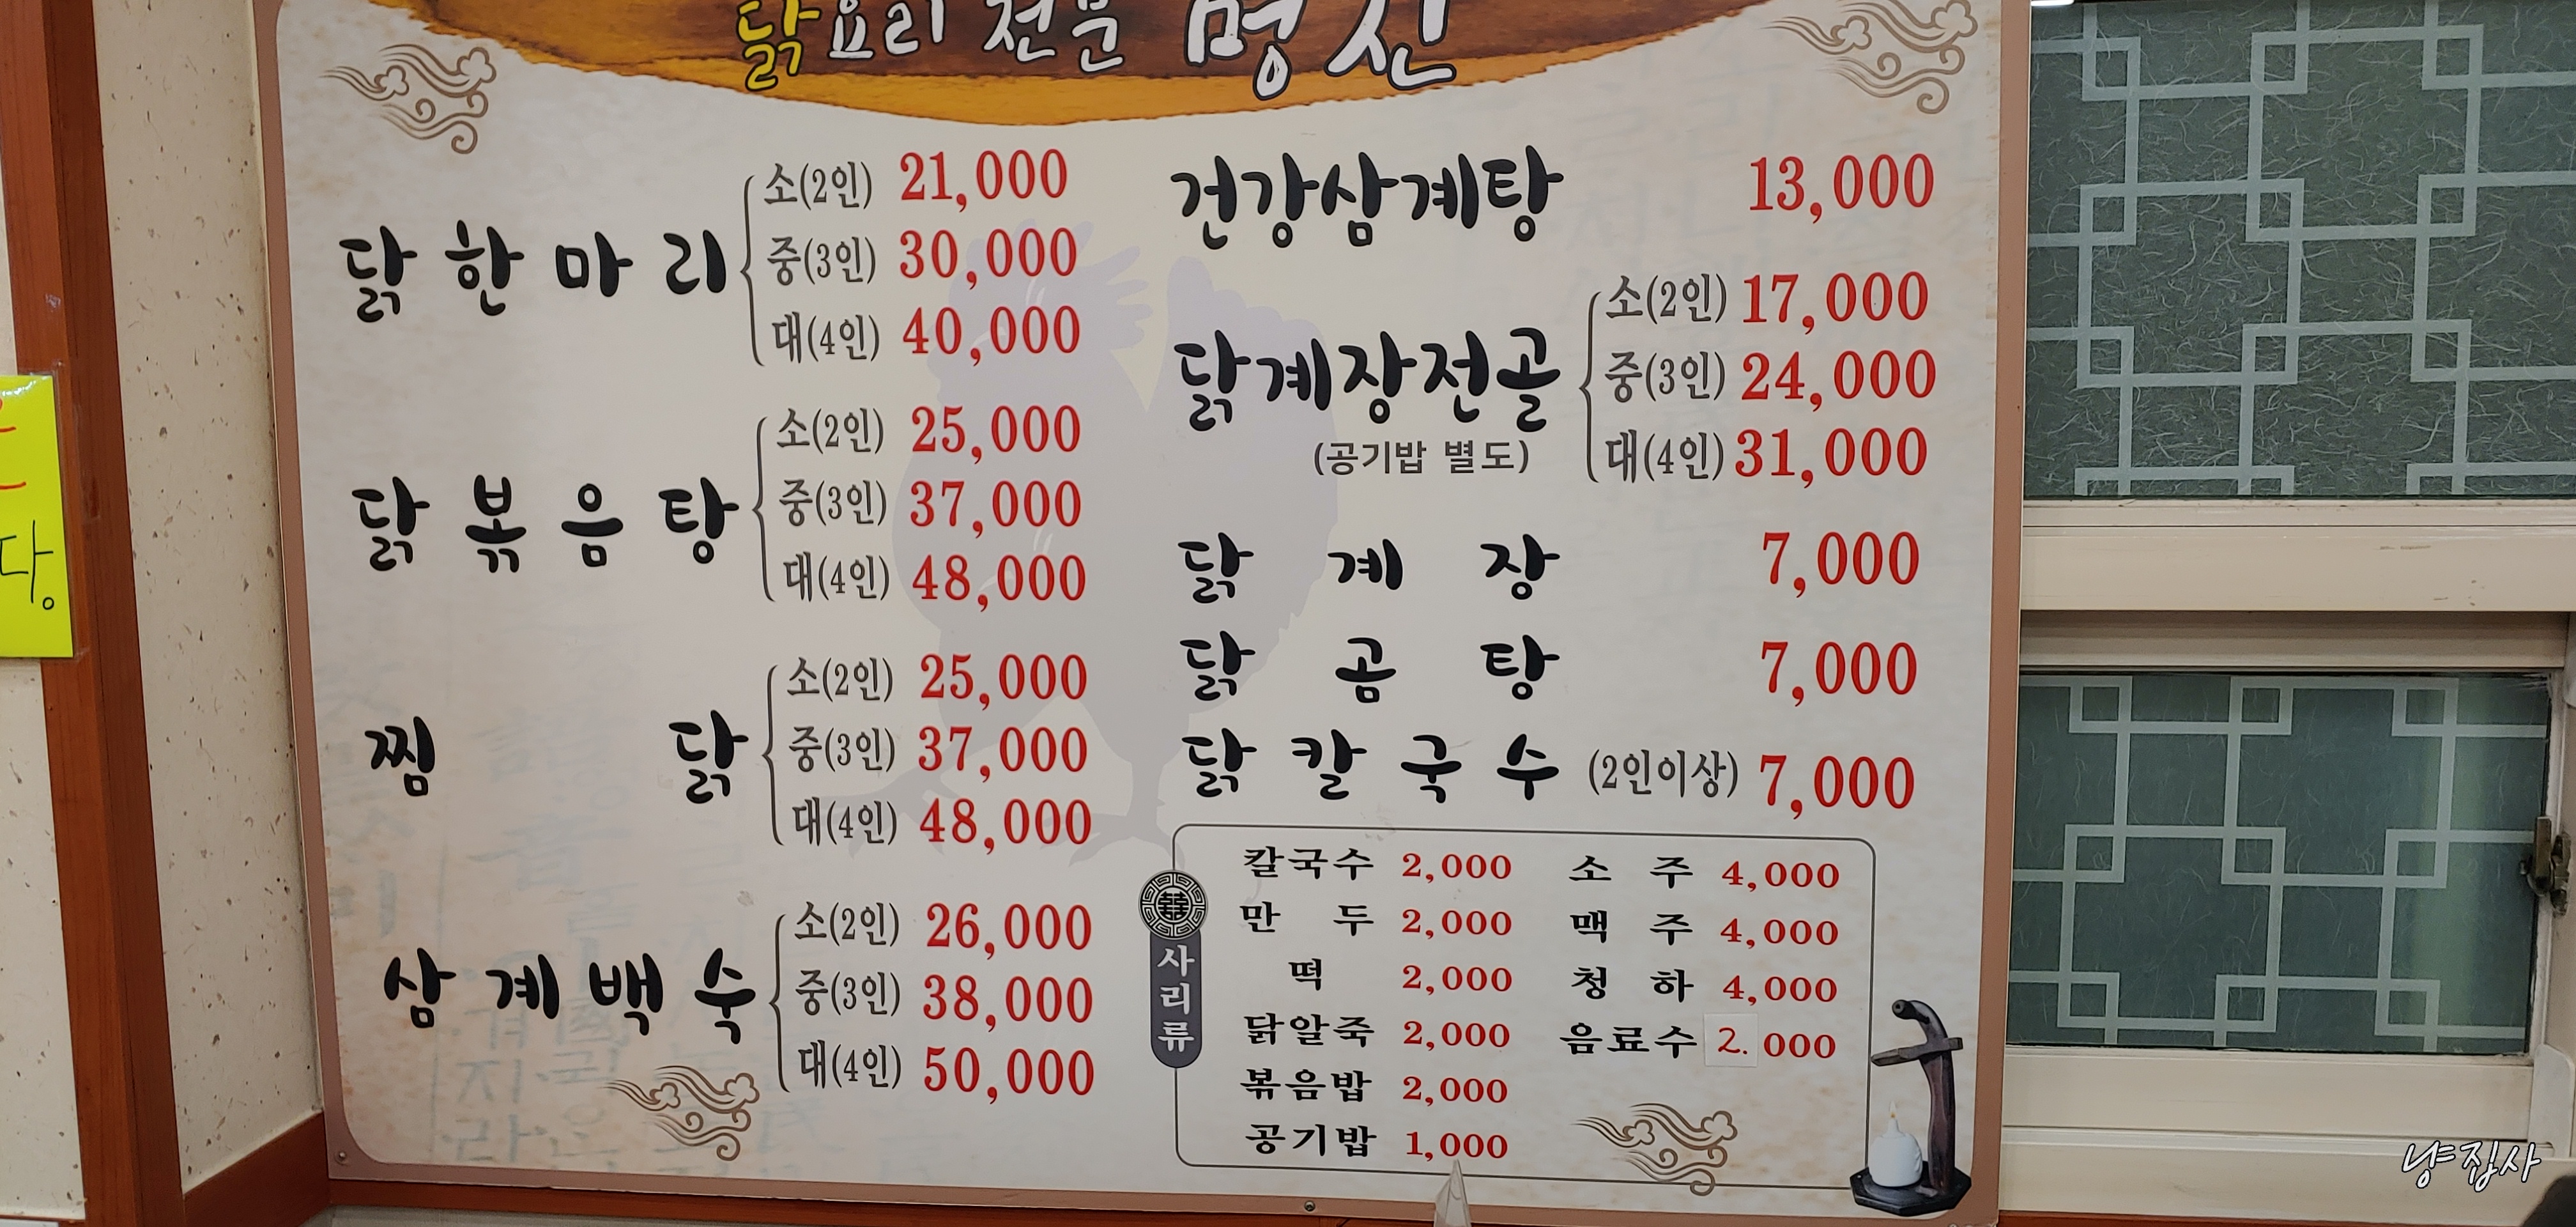 닭요리 전문 명신
닭한마리
소(2인) 21,000
중(3인) 30,000
대(4인) 40,000
닭볶음탕
소(2인) 25,000
중(3인) 37,000
대(4인) 48,000
찜닭
소(2인) 25,000
중(3인) 37,000
대(4인) 48,000
삼계백숙
소(2인) 26,000
중(3인) 38,000
대(4인) 50,000
건강삼계탕 13,000
닭계장전골
(공기밥 별도)
소(2인) 17,000
중(3인) 24,000
대(4인) 31,000
닭계장 7,000
닭곰탕 7,000
닭칼국수 (2인이상) 7,000
사리류
칼국수 2,000
만두 2,000
떡 2,000
닭알죽 2,000
볶음밥 2,000
공기밥 1,000
소주 4,000
맥주 4,000
청하 4,000
음료수 2.000
다.
냥집사